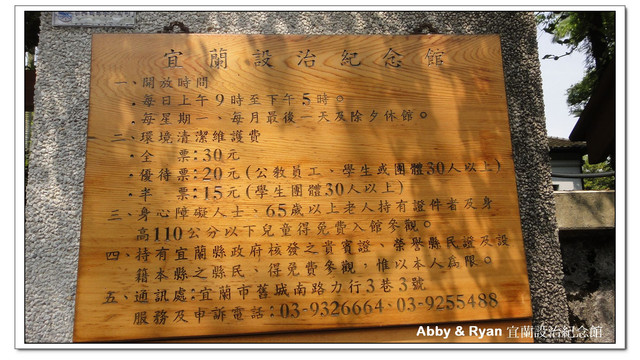 宜蘭設治紀念館
一、開放時間
．每日上午9時至下午5時。
．每星期一、每月最後一天及除夕休館。
二、環境清潔維護費
．全　票：30元
．優待票：20元(公教員工、學生或團體30人以上)
．半　票：15元(學生團體30人以上)
三、身心障礙人士、65歲以上老人持有證件者及身
高110公分以下兒童得免費入館參觀。
四、持有宜蘭縣政府核發之貴賓證、榮譽縣民證及設
籍本縣之縣民、得免費參觀，惟以本人為限。
五、通訊處：宜蘭市舊城南路力行3巷3號
服務及申訴電話：03-9326664、03-9255488
Abby & Ryan 宜蘭設治紀念館